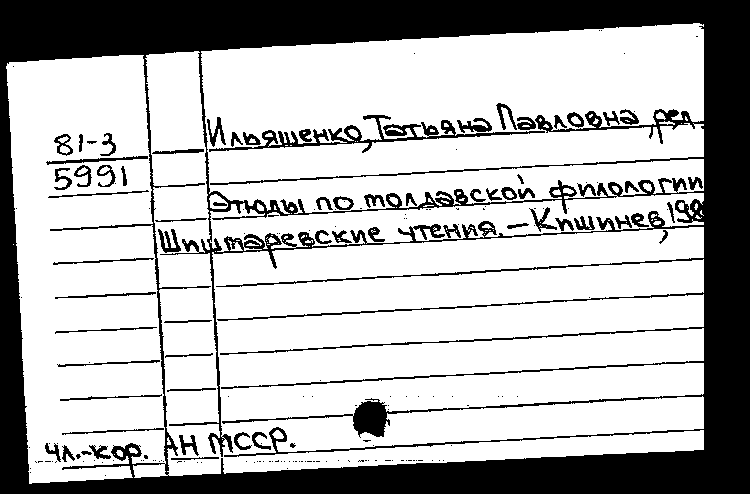 81-3
5991
Ильяшенко, Татьяна Павловна, ред.
Этюды по молдавской филологии
Шишмаревские чтения. — Кишинев, 198
чл.-кор. АН МССР.